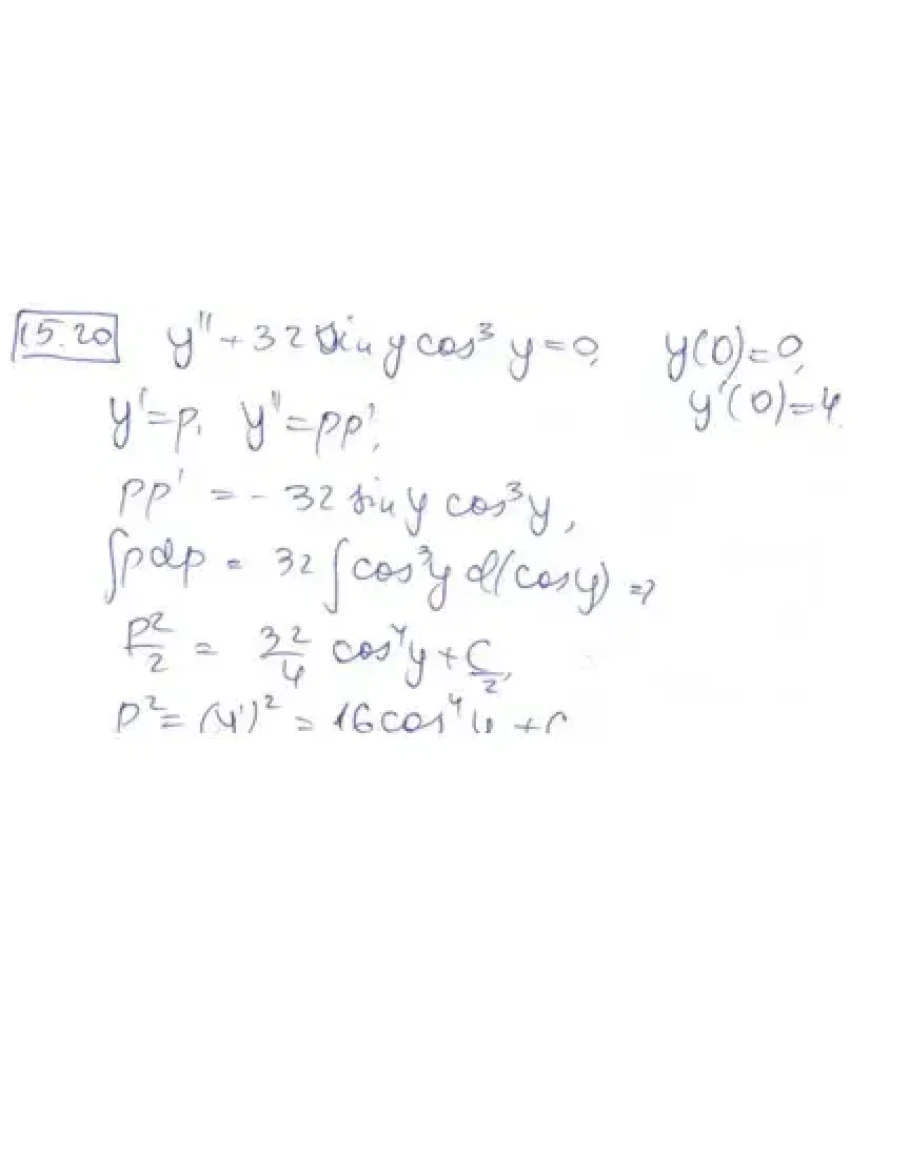 15.20 y'' + 32 sin y cos³ y = 0, y(0) = 0,
y'(0) = 4.
y' = p, y'' = pp',
pp' = - 32 sin y cos³ y,
∫pdp = 32 ∫cos³y d(cos y) =>
p²/2 = 32/4 cos⁴y + C/2,
p² = (y')² = 16 cos⁴ y + C